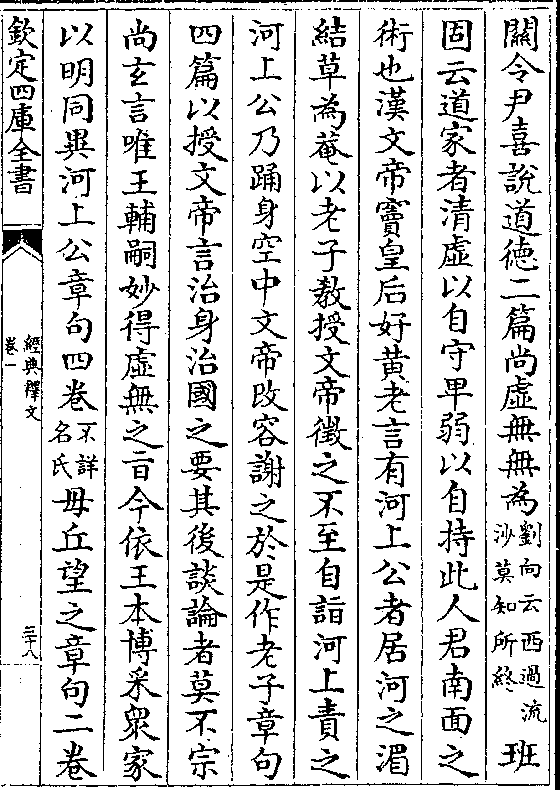 關令尹喜說道徳二篇尚虛無無為劉向云西過流沙莫知所終班
固云道家者清虛以自守卑弱以自持此人君南面之
術也漢文帝竇皇后好黃老言有河上公者居河之湄
結草為菴以老子教授文帝徵之不至自詣河上責之
河上公乃踊身空中文帝改容謝之於是作老子章句
四篇以授文帝言治身治國之要其後談論者莫不宗
尚玄言唯王輔嗣妙得虛無之㫖今依王本博采衆家
以明同異河上公章句四卷不詳名氏毋丘望之章句二卷
欽定四庫全書
經典釋文
卷一
三十八